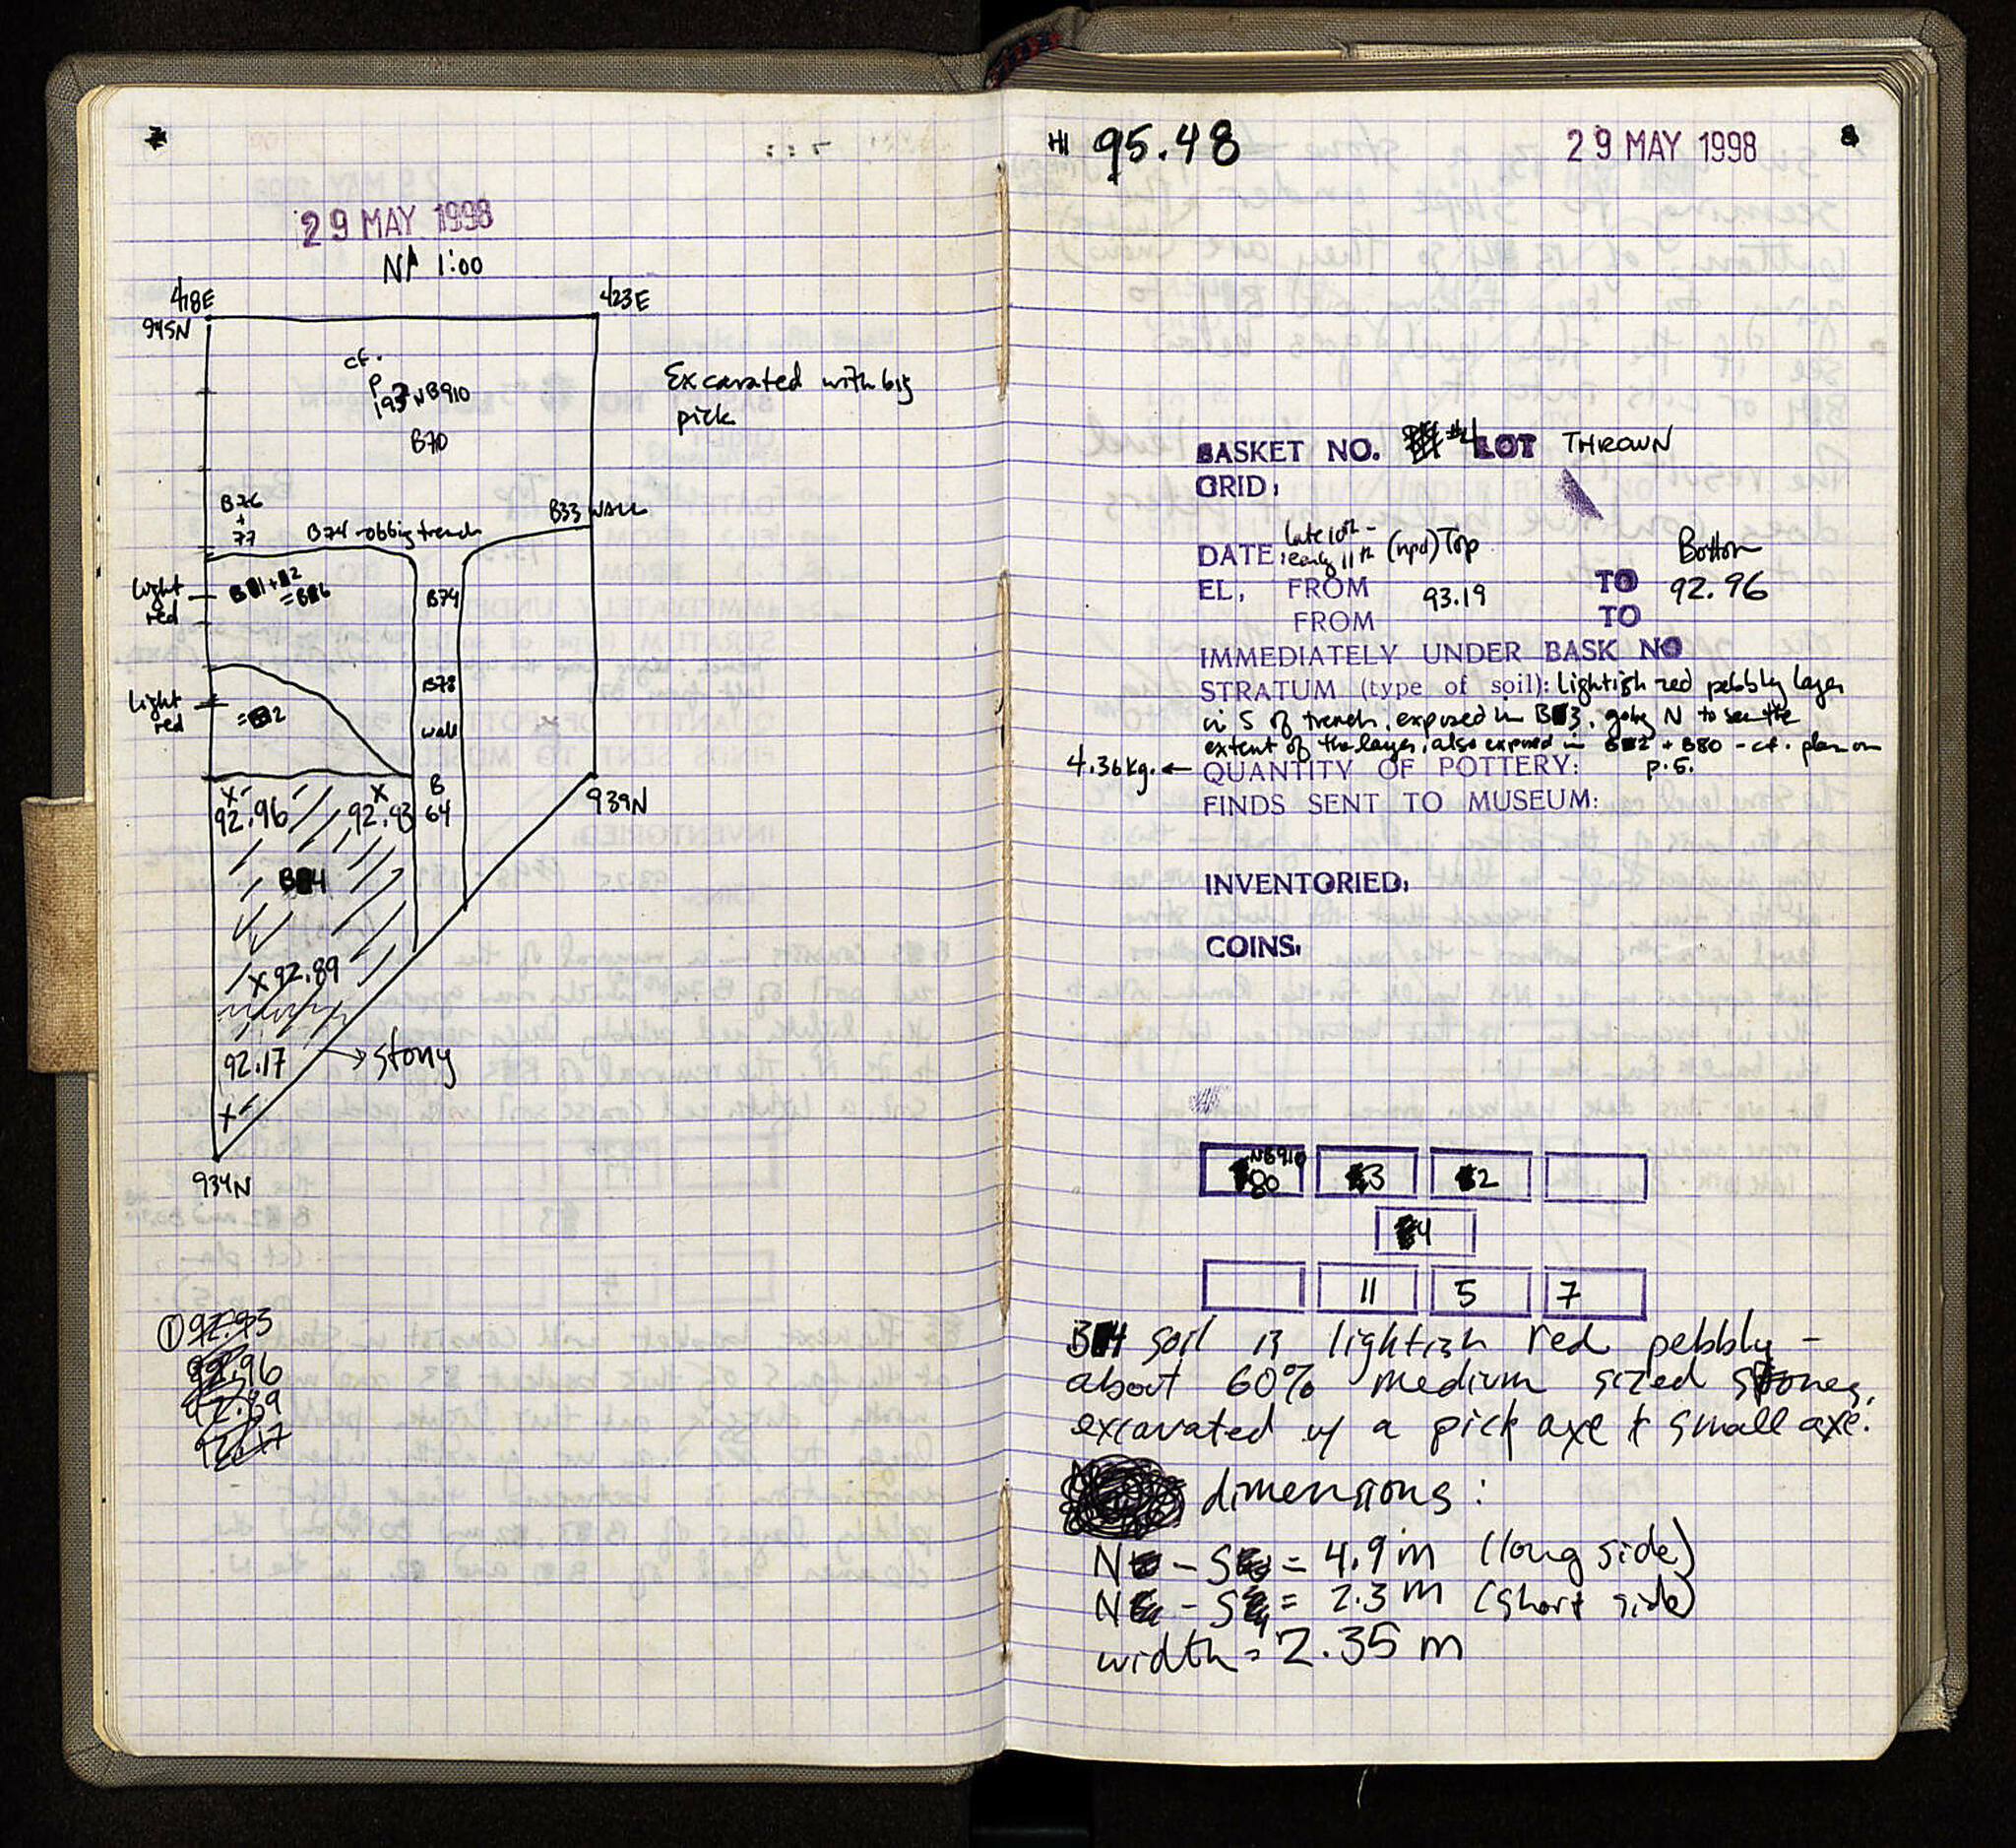 7
29 MAY 1998
N↑ 1:00
418E
423E
945N
cf.
p
197 NB910
B70
Excavated with big
pick
B76
+
77
B74 robbing trench
B33 WALL
Light
red
B1+2
=B6
B74
Light
red
=2
B78
wall
B
64
939N
92.96
92.93
B4
92.89
92.17
stony
934N
① 92.93
92.96
92.89
92.17
HI 95.48
29 MAY 1998
8
BASKET NO. #4 LOT THROWN
GRID:
DATE: late 10th - early 11th (npd) Top
Bottom
EL, FROM 93.19 TO 92.96
FROM TO
IMMEDIATELY UNDER BASK NO
STRATUM (type of soil): lightish red pebbly layer
in S of trench, exposed in B3, going N to see the
extent of the layer, also exposed in B2 + B80 - cf. plan on
p. 5.
4.36kg. ← QUANTITY OF POTTERY:
FINDS SENT TO MUSEUM:
INVENTORIED:
COINS:
NB910
80 3 2
4
11 5 7
B4 soil is lightish red pebbly -
about 60% medium sized stones,
excavated w/ a pick axe + small axe.
dimensions:
N - S = 4.9 m (long side)
N - S = 2.3 m (short side)
width = 2.35 m